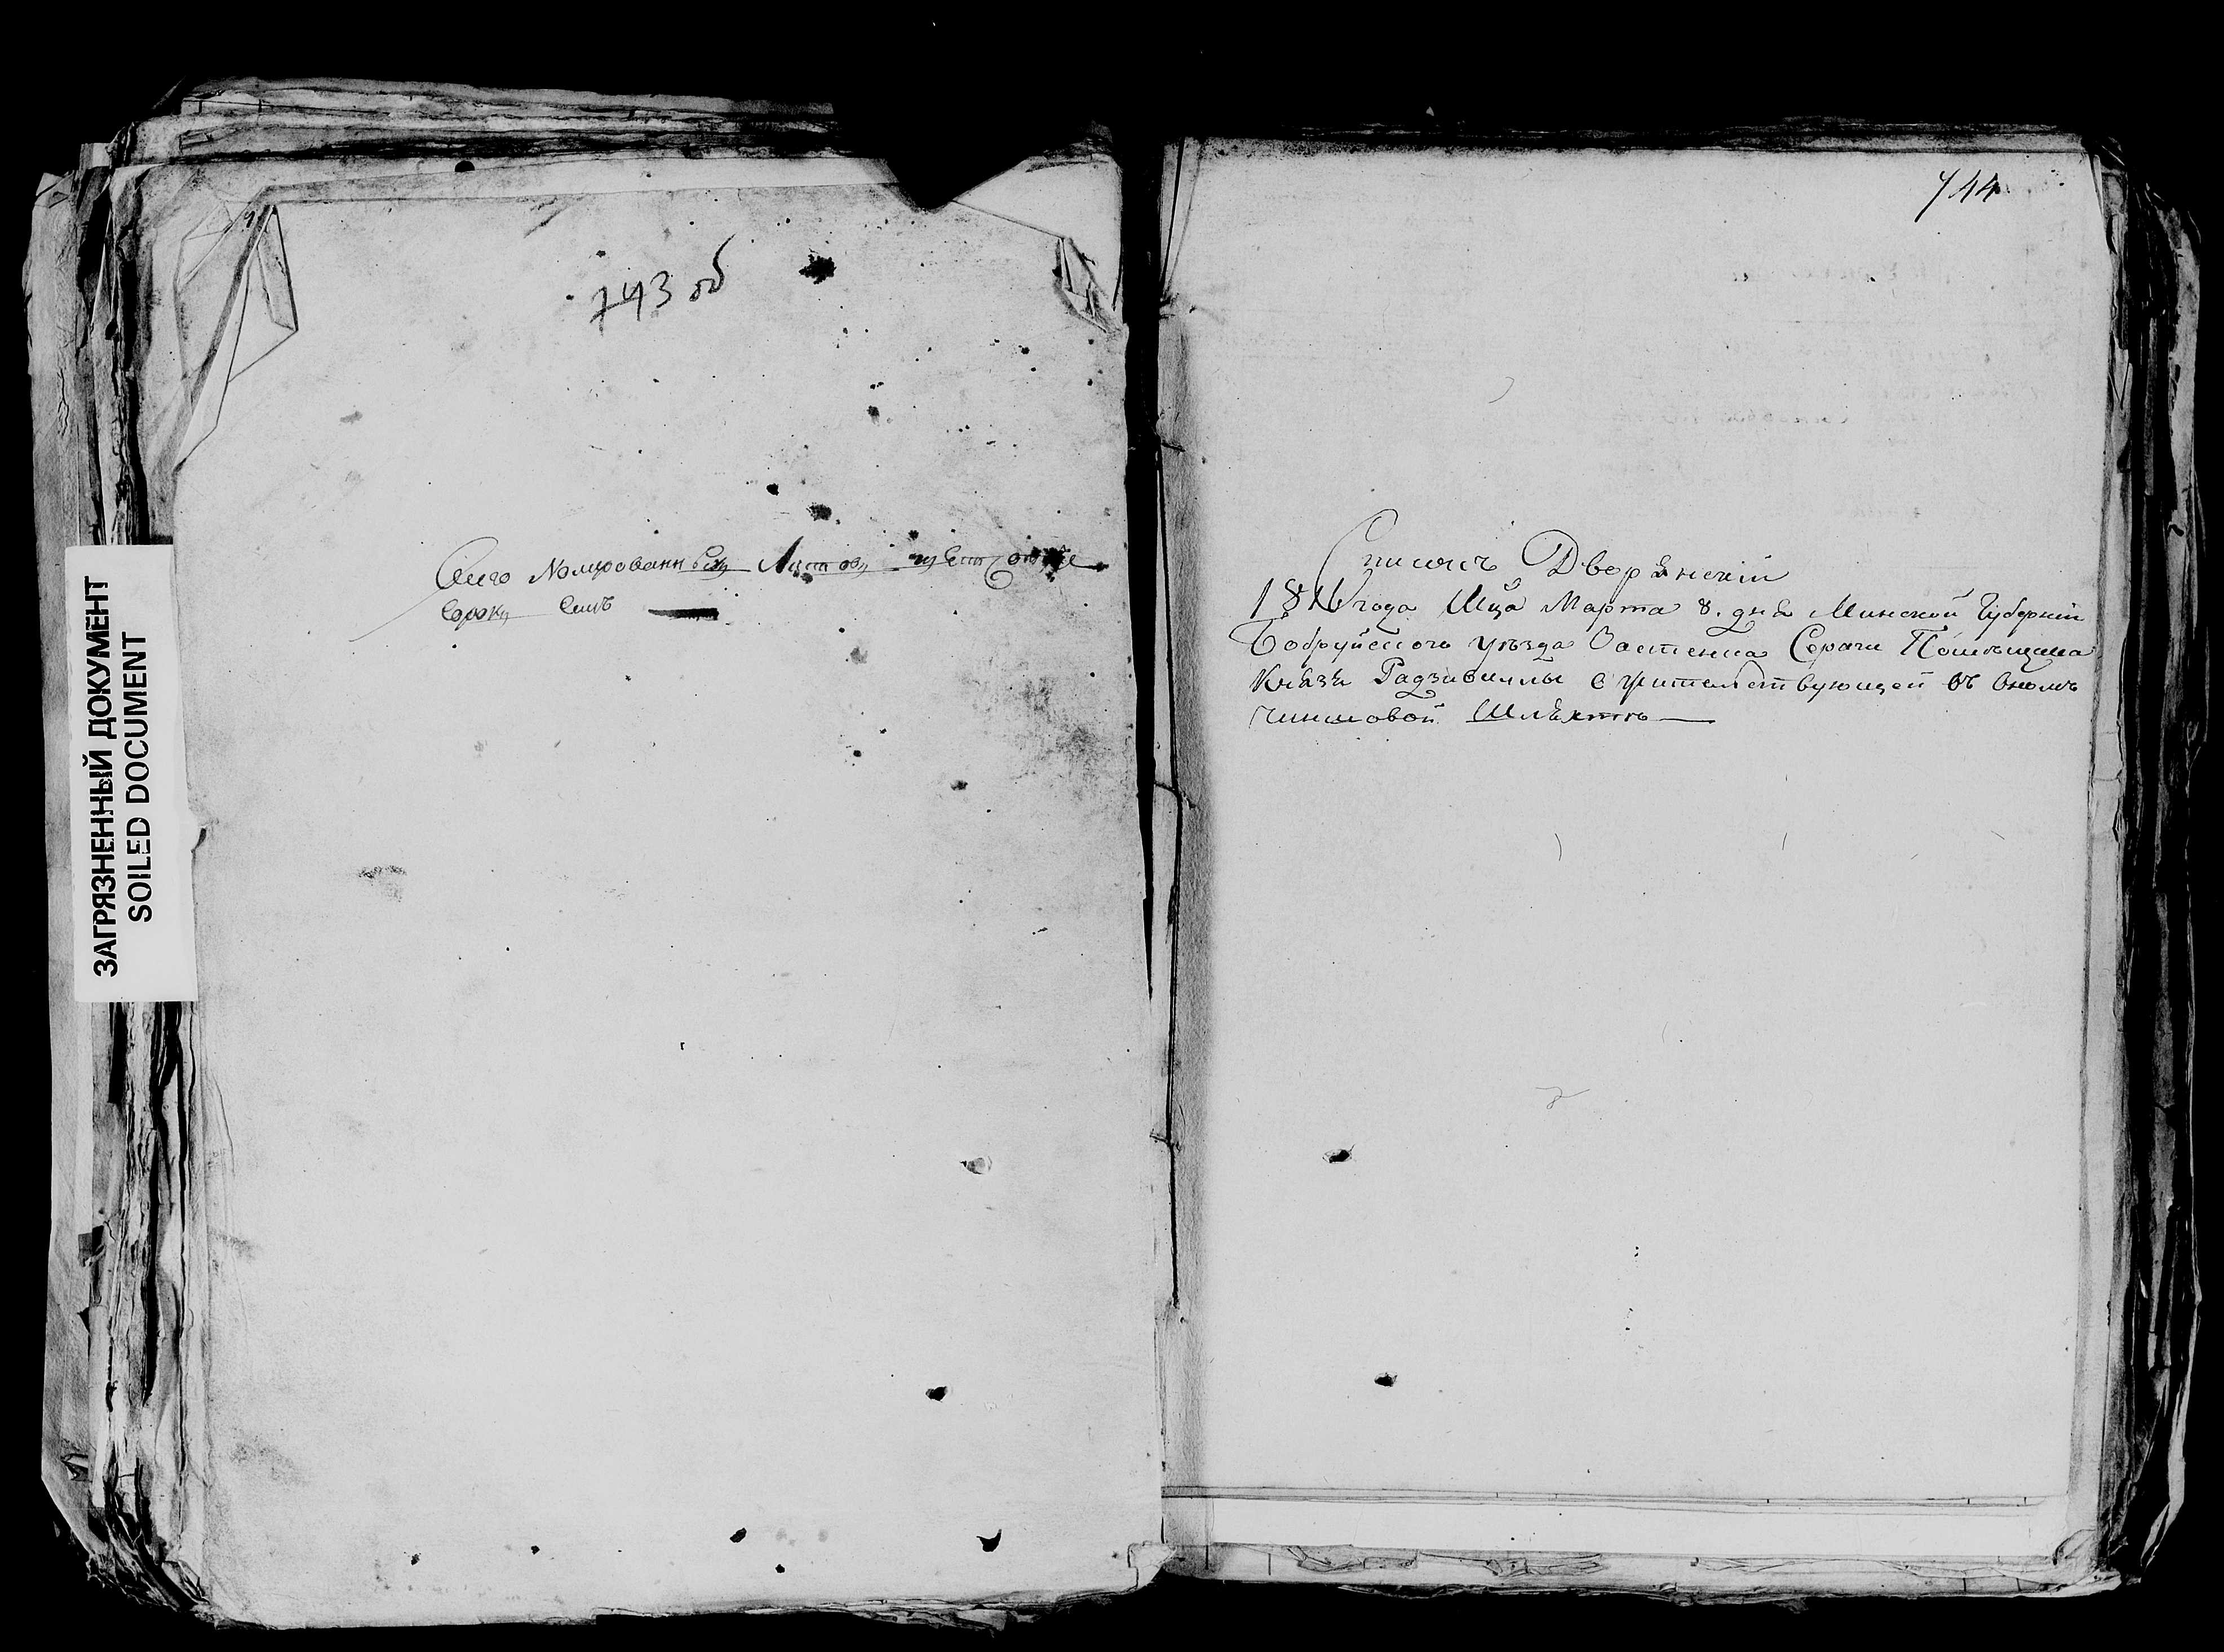 743 об
Сего Номерованныхъ Листовъ шестьсотъ
Сорокъ Семь
ЗАГРЯЗНЕННЫЙ ДОКУМЕНТ
SOILED DOCUMENT
744
Списокъ Дворянскій
1816 года Мца Марта 8. дня Минской Губерніи
Бобруйского уѣзда Застенка Сераги Помѣщика
Князя Радзивиллы о жительствующей въ ономъ
чиншовой Шляхтѣ